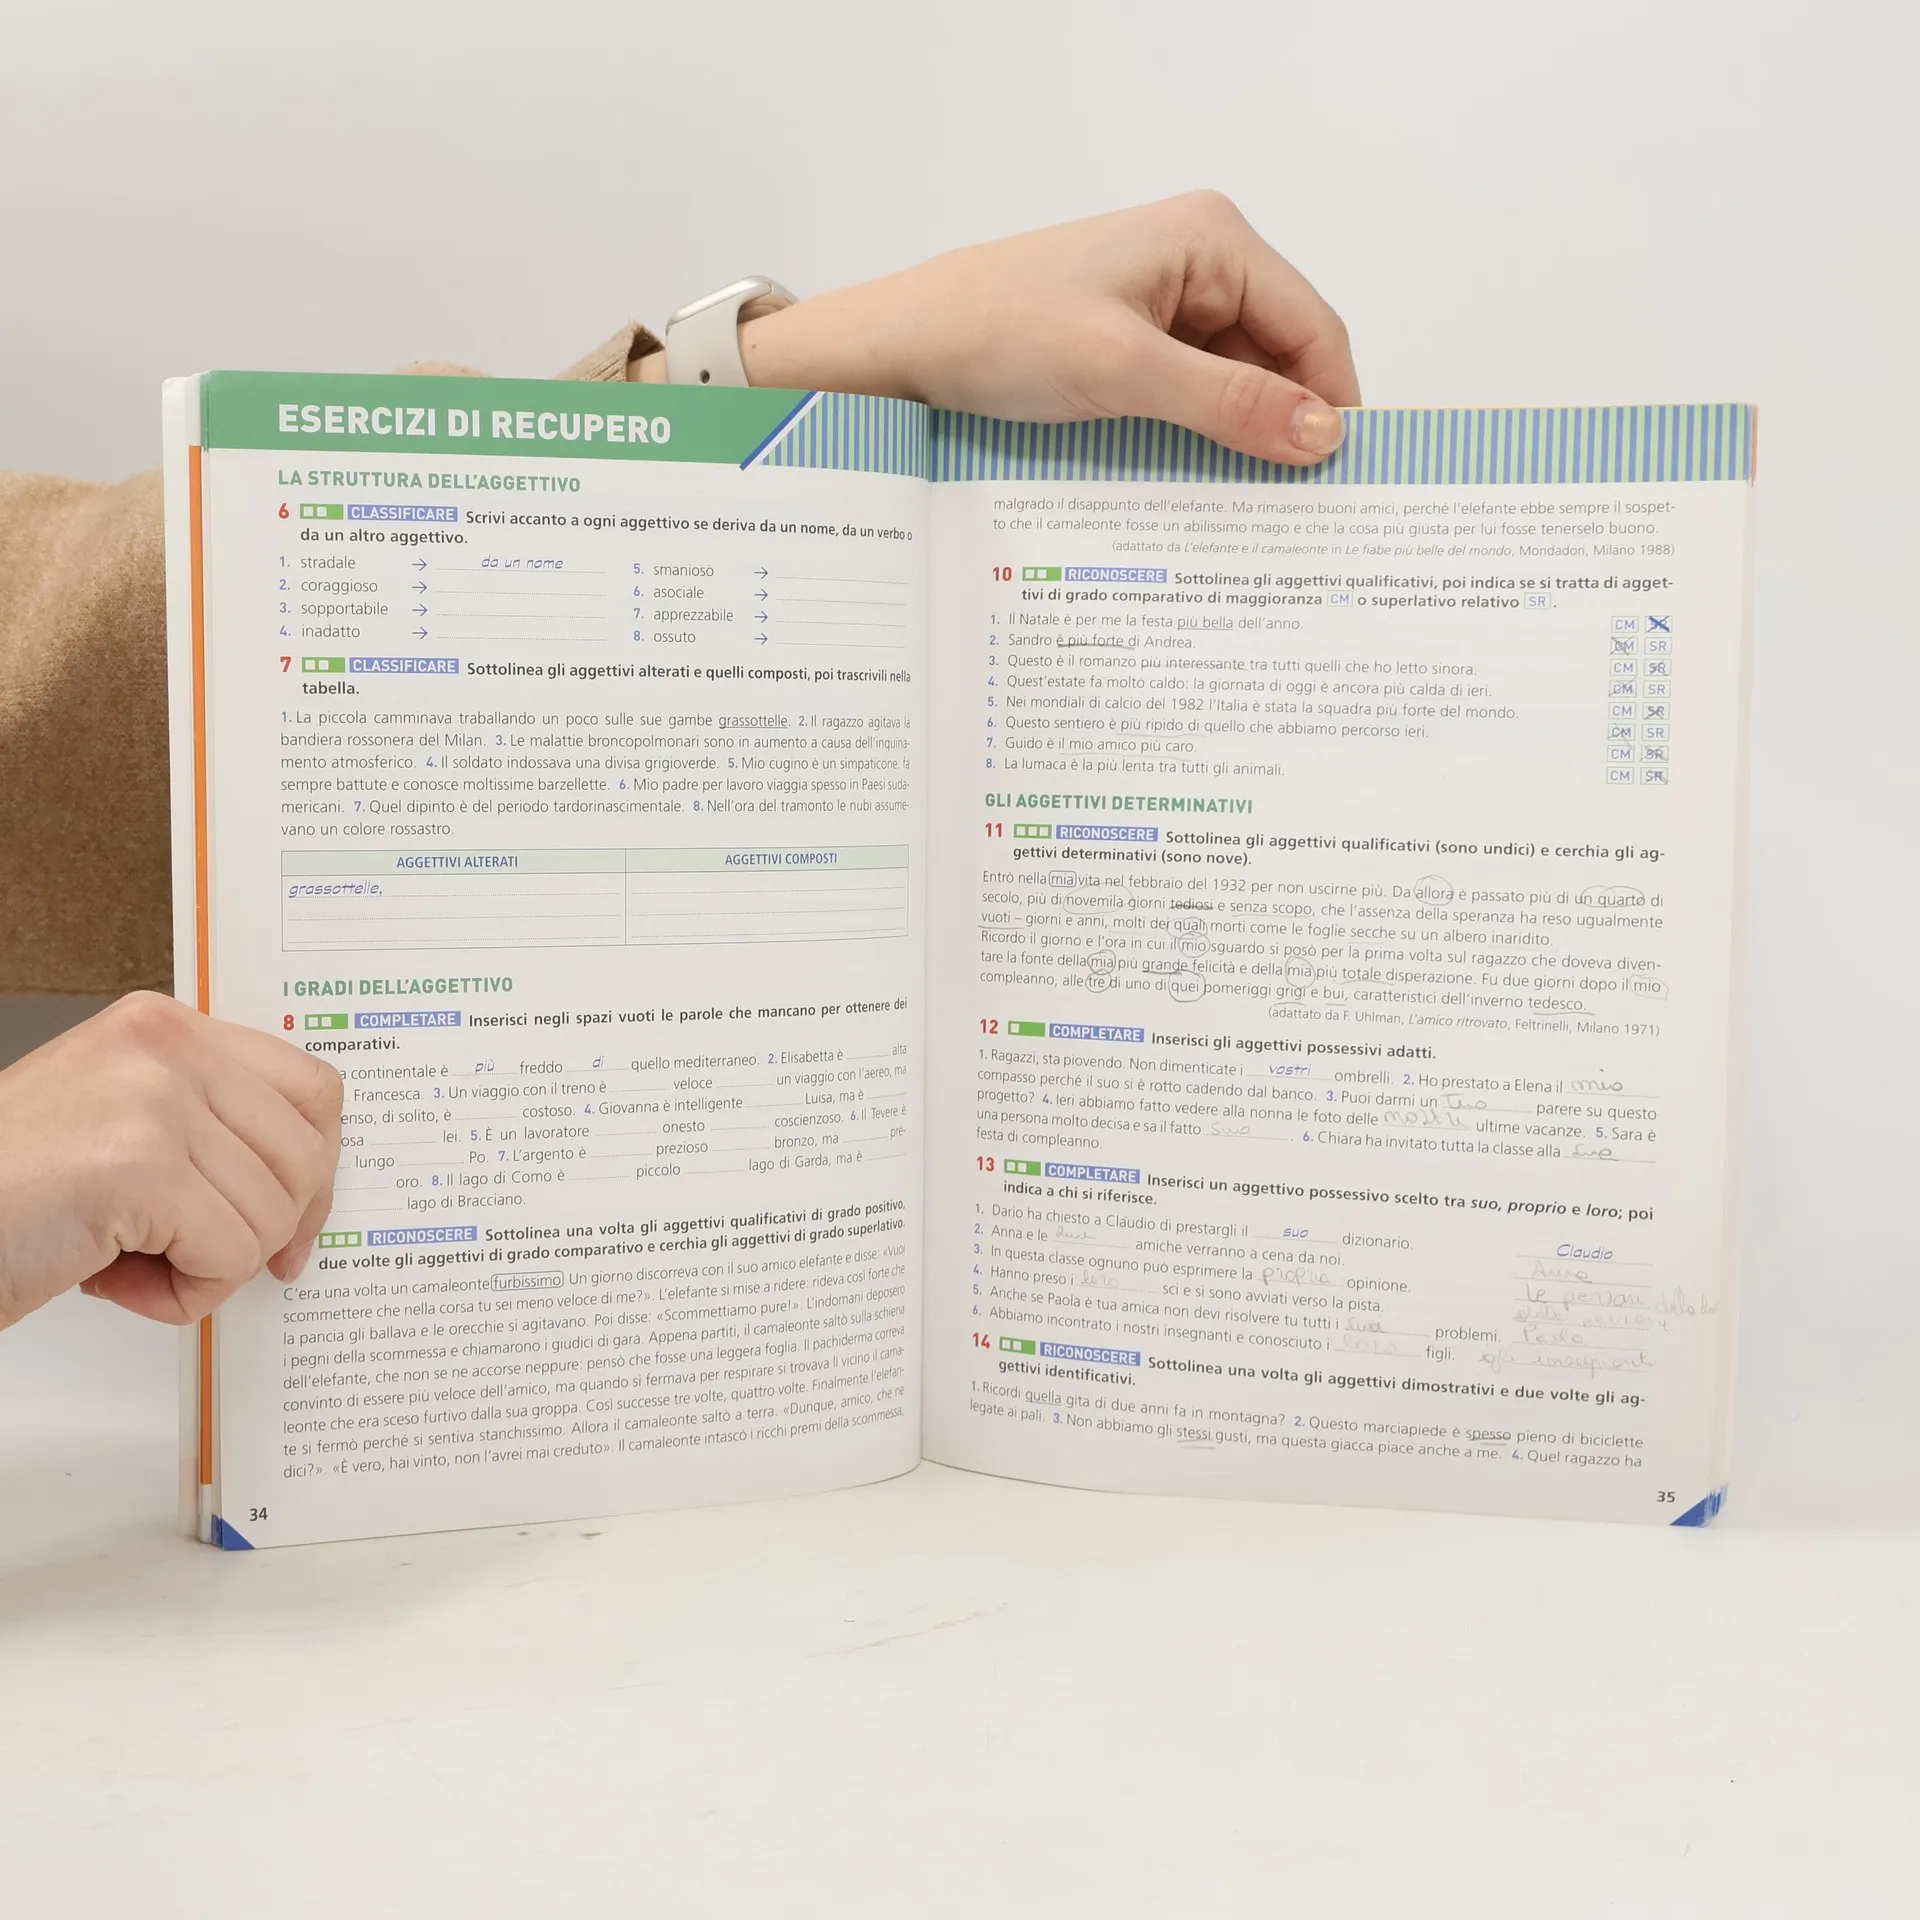 ESERCIZI DI RECUPERO
LA STRUTTURA DELL'AGGETTIVO
6 CLASSIFICARE Scrivi accanto a ogni aggettivo se deriva da un nome, da un verbo o
da un altro aggettivo.
1. stradale → da un nome
2. coraggioso →
3. sopportabile →
4. inadatto →
5. smanioso →
6. asociale →
7. apprezzabile →
8. ossuto →
7 CLASSIFICARE Sottolinea gli aggettivi alterati e quelli composti, poi trascrivili nella
tabella.
1. La piccola camminava traballando un poco sulle sue gambe grassottelle. 2. Il ragazzo agitava la
bandiera rossonera del Milan. 3. Le malattie broncopolmonari sono in aumento a causa dell'inquina-
mento atmosferico. 4. Il soldato indossava una divisa grigioverde. 5. Mio cugino è un simpaticone: fa
sempre battute e conosce moltissime barzellette. 6. Mio padre per lavoro viaggia spesso in Paesi suda-
mericani. 7. Quel dipinto è del periodo tardorinascimentale. 8. Nell'ora del tramonto le nubi assume-
vano un colore rossastro.
AGGETTIVI ALTERATI AGGETTIVI COMPOSTI
grassottelle,
I GRADI DELL'AGGETTIVO
8 COMPLETARE Inserisci negli spazi vuoti le parole che mancano per ottenere dei
comparativi.
a continentale è più freddo di quello mediterraneo. 2. Elisabetta è alta
Francesca. 3. Un viaggio con il treno è veloce un viaggio con l'aereo, ma
enso, di solito, è costoso. 4. Giovanna è intelligente Luisa, ma è
osa lei. 5. È un lavoratore onesto coscienzoso. 6. Il Tevere è
lungo Po. 7. L'argento è prezioso bronzo, ma pre-
oro. 8. Il lago di Como è piccolo lago di Garda, ma è
lago di Bracciano.
RICONOSCERE Sottolinea una volta gli aggettivi qualificativi di grado positivo,
due volte gli aggettivi di grado comparativo e cerchia gli aggettivi di grado superlativo.
C'era una volta un camaleonte furbissimo. Un giorno discorreva con il suo amico elefante e disse: «Vuoi
scommettere che nella corsa tu sei meno veloce di me?». L'elefante si mise a ridere: rideva così forte che
la pancia gli ballava e le orecchie si agitavano. Poi disse: «Scommettiamo pure!». L'indomani deposero
i pegni della scommessa e chiamarono i giudici di gara. Appena partiti, il camaleonte saltò sulla schiena
dell'elefante, che non se ne accorse neppure: pensò che fosse una leggera foglia. Il pachiderma correva
convinto di essere più veloce dell'amico, ma quando si fermava per respirare si trovava lì vicino il cama-
leonte che era sceso furtivo dalla sua groppa. Così successe tre volte, quattro volte. Finalmente l'elefan-
te si fermò perché si sentiva stanchissimo. Allora il camaleonte saltò a terra. «Dunque, amico, che ne
dici?». «È vero, hai vinto, non l'avrei mai creduto». Il camaleonte intascò i ricchi premi della scommessa,
34
malgrado il disappunto dell'elefante. Ma rimasero buoni amici, perché l'elefante ebbe sempre il sospet-
to che il camaleonte fosse un abilissimo mago e che la cosa più giusta per lui fosse tenerselo buono.
(adattato da L'elefante e il camaleonte in Le fiabe più belle del mondo, Mondadori, Milano 1988)
10 RICONOSCERE Sottolinea gli aggettivi qualificativi, poi indica se si tratta di agget-
tivi di grado comparativo di maggioranza CM o superlativo relativo SR.
1. Il Natale è per me la festa più bella dell'anno. CM SR
2. Sandro è più forte di Andrea. CM SR
3. Questo è il romanzo più interessante tra tutti quelli che ho letto sinora. CM SR
4. Quest'estate fa molto caldo: la giornata di oggi è ancora più calda di ieri. CM SR
5. Nei mondiali di calcio del 1982 l'Italia è stata la squadra più forte del mondo. CM SR
6. Questo sentiero è più ripido di quello che abbiamo percorso ieri. CM SR
7. Guido è il mio amico più caro. CM SR
8. La lumaca è la più lenta tra tutti gli animali. CM SR
GLI AGGETTIVI DETERMINATIVI
11 RICONOSCERE Sottolinea gli aggettivi qualificativi (sono undici) e cerchia gli ag-
gettivi determinativi (sono nove).
Entrò nella mia vita nel febbraio del 1932 per non uscirne più. Da allora è passato più di un quarto di
secolo, più di novemila giorni tediosi e senza scopo, che l'assenza della speranza ha reso ugualmente
vuoti – giorni e anni, molti dei quali morti come le foglie secche su un albero inaridito.
Ricordo il giorno e l'ora in cui il mio sguardo si posò per la prima volta sul ragazzo che doveva diven-
tare la fonte della mia più grande felicità e della mia più totale disperazione. Fu due giorni dopo il mio
compleanno, alle tre di uno di quei pomeriggi grigi e bui, caratteristici dell'inverno tedesco.
(adattato da F. Uhlman, L'amico ritrovato, Feltrinelli, Milano 1971)
12 COMPLETARE Inserisci gli aggettivi possessivi adatti.
1. Ragazzi, sta piovendo. Non dimenticate i vostri ombrelli. 2. Ho prestato a Elena il mio
compasso perché il suo si è rotto cadendo dal banco. 3. Puoi darmi un tuo parere su questo
progetto? 4. Ieri abbiamo fatto vedere alla nonna le foto delle ultime vacanze. 5. Sara è
una persona molto decisa e sa il fatto suo. 6. Chiara ha invitato tutta la classe alla sue
festa di compleanno.
13 COMPLETARE Inserisci un aggettivo possessivo scelto tra suo, proprio e loro; poi
indica a chi si riferisce.
1. Dario ha chiesto a Claudio di prestargli il suo dizionario. Claudio
2. Anna e le amiche verranno a cena da noi. Anna
3. In questa classe ognuno può esprimere la propria opinione. le persone
4. Hanno preso i loro sci e si sono avviati verso la pista.
5. Anche se Paola è tua amica non devi risolvere tu tutti i suoi problemi. Paola
6. Abbiamo incontrato i nostri insegnanti e conosciuto i loro figli. gli insegnanti
14 RICONOSCERE Sottolinea una volta gli aggettivi dimostrativi e due volte gli ag-
gettivi identificativi.
1. Ricordi quella gita di due anni fa in montagna? 2. Questo marciapiede è spesso pieno di biciclette
legate ai pali. 3. Non abbiamo gli stessi gusti, ma questa giacca piace anche a me. 4. Quel ragazzo ha
35